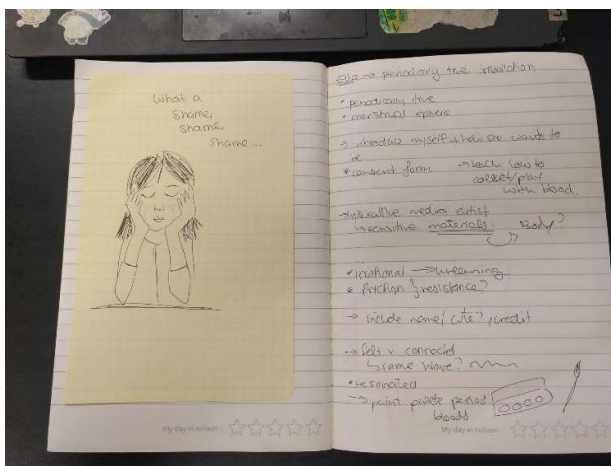 What a
Shame,
Shame
Shame...
My day in colour:
Ella → periodically true
• periodically true
• menstrual sphere
→ introduce myself + how she wants to
be
• consent form → teach how to
collect/play
with blood.
media artist
↳ sensitive materials. Body?
• irrational →
• friction } resistance?
→ include name/ cite?, credit
→ felt v connected
↳ same wave?
• resonated
→ paint pallete period
bloods
My day in colour: